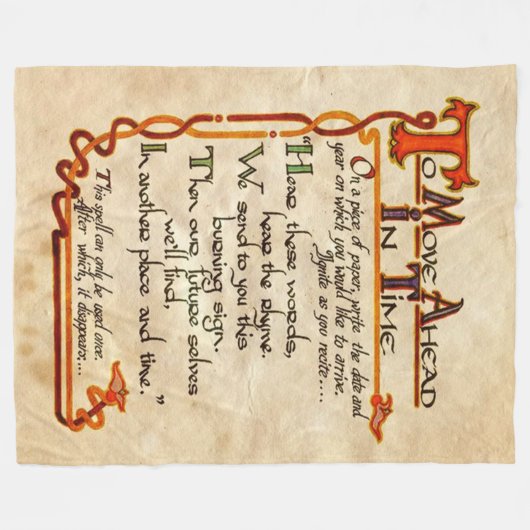 To Move Ahead
In Time
On a piece of paper, write the date and
year on which you would like to arrive.
Ignite as you recite....
"Hear these words,
hear the rhyme.
We send to you this
burning sign.
Then our future selves
we'll find,
In another place and time."
This spell can only be used once.
After which, it disappears...